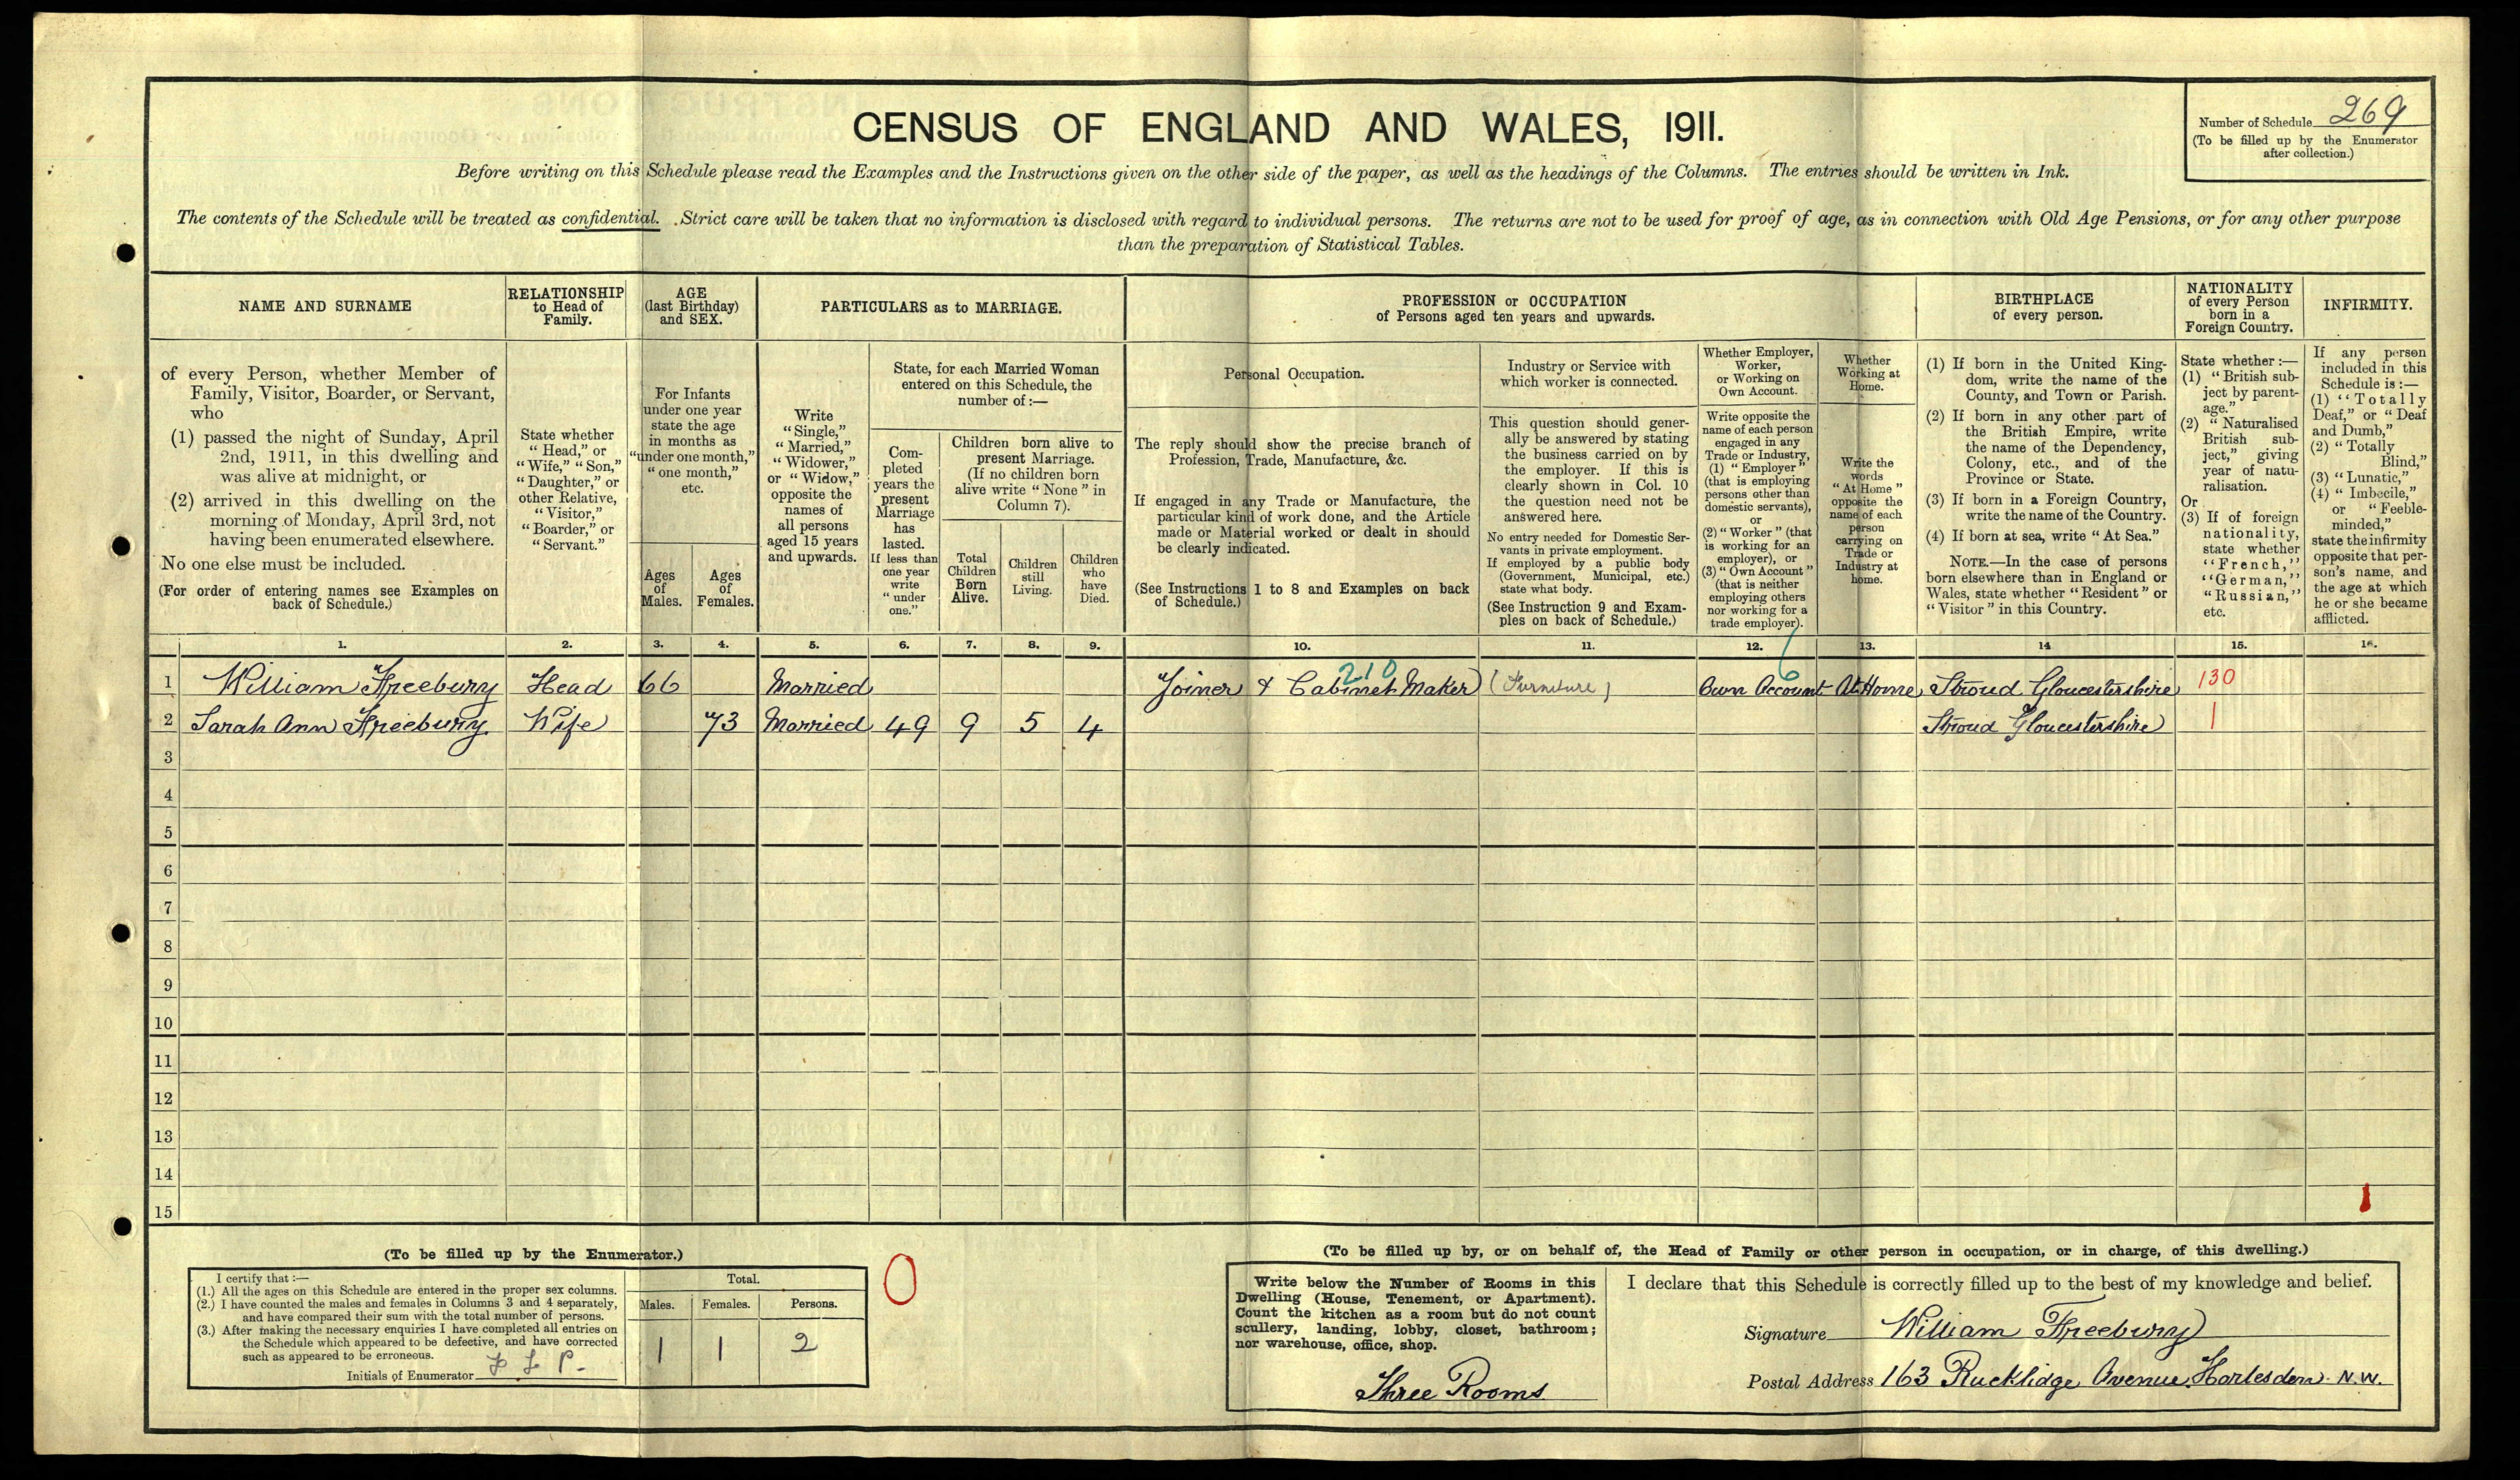 CENSUS OF ENGLAND AND WALES, 1911.
Number of Schedule 269
(To be filled up by the Enumerator
after collection.)
Before writing on this Schedule please read the Examples and the Instructions given on the other side of the paper, as well as the headings of the Columns. The entries should be written in Ink.
The contents of the Schedule will be treated as confidential. Strict care will be taken that no information is disclosed with regard to individual persons. The returns are not to be used for proof of age, as in connection with Old Age Pensions, or for any other purpose
than the preparation of Statistical Tables.
NAME AND SURNAME
of every Person, whether Member of
Family, Visitor, Boarder, or Servant,
who
(1) passed the night of Sunday, April
2nd, 1911, in this dwelling and
was alive at midnight, or
(2) arrived in this dwelling on the
morning of Monday, April 3rd, not
having been enumerated elsewhere.
No one else must be included.
(For order of entering names see Examples on
back of Schedule.)
RELATIONSHIP
to Head of
Family.
State whether
"Head," or
"Wife," "Son,"
"Daughter," or
other Relative,
"Visitor,"
"Boarder," or
"Servant."
AGE
(last Birthday)
and SEX.
For Infants
under one year
state the age
in months as
"under one month,"
"one month,"
etc.
Ages
of
Males.
Ages
of
Females.
PARTICULARS as to MARRIAGE.
Write
"Single,"
"Married,"
"Widower,"
or "Widow,"
opposite the
names of
all persons
aged 15 years
and upwards.
State, for each Married Woman
entered on this Schedule, the
number of :—
Com-
pleted
years the
present
Marriage
has
lasted.
If less than
one year
write
"under
one."
Children born alive to
present Marriage.
(If no children born
alive write "None" in
Column 7).
Total
Children
Born
Alive.
Children
still
Living.
Children
who
have
Died.
PROFESSION or OCCUPATION
of Persons aged ten years and upwards.
Personal Occupation.
The reply should show the precise branch of
Profession, Trade, Manufacture, &c.
If engaged in any Trade or Manufacture, the
particular kind of work done, and the Article
made or Material worked or dealt in should
be clearly indicated.
(See Instructions 1 to 8 and Examples on back
of Schedule.)
Industry or Service with
which worker is connected.
This question should gener-
ally be answered by stating
the business carried on by
the employer. If this is
clearly shown in Col. 10
the question need not be
answered here.
No entry needed for Domestic Ser-
vants in private employment.
If employed by a public body
(Government, Municipal, etc.)
state what body.
(See Instruction 9 and Exam-
ples on back of Schedule.)
Whether Employer,
Worker,
or Working on
Own Account.
Write opposite the
name of each person
engaged in any
Trade or Industry,
(1) "Employer"
(that is employing
persons other than
domestic servants),
or
(2) "Worker" (that
is working for an
employer), or
(3) "Own Account"
(that is neither
employing others
nor working for a
trade employer).
Whether
Working at
Home.
Write the
words
"At Home"
opposite the
name of each
person
carrying on
Trade or
Industry at
home.
BIRTHPLACE
of every person.
(1) If born in the United King-
dom, write the name of the
County, and Town or Parish.
(2) If born in any other part of
the British Empire, write
the name of the Dependency,
Colony, etc., and of the
Province or State.
(3) If born in a Foreign Country,
write the name of the Country.
(4) If born at sea, write "At Sea."
NOTE.—In the case of persons
born elsewhere than in England or
Wales, state whether "Resident" or
"Visitor" in this Country.
NATIONALITY
of every Person
born in a
Foreign Country.
State whether :—
(1) "British sub-
ject by parent-
age."
(2) "Naturalised
British sub-
ject," giving
year of natu-
ralisation.
Or
(3) If of foreign
nationality,
state whether
"French,"
"German,"
"Russian,"
etc.
INFIRMITY.
If any person
included in this
Schedule is :—
(1) "Totally
Deaf," or "Deaf
and Dumb,"
(2) "Totally
Blind,"
(3) "Lunatic,"
(4) "Imbecile,"
or "Feeble-
minded,"
state the infirmity
opposite that per-
son's name, and
the age at which
he or she became
afflicted.
1. 2. 3. 4. 5. 6. 7. 8. 9. 10. 11. 12. 13. 14 15. 16.
210 6
1 William Freebury Head 66 Married Joiner & Cabinet Maker (Furniture) Own Account At Home Stroud Gloucestershire 130
2 Sarah Ann Freebury Wife 73 Married 49 9 5 4 Stroud Gloucestershire 1
3
4
5
6
7
8
9
10
11
12
13
14
15
(To be filled up by the Enumerator.)
I certify that :—
(1.) All the ages on this Schedule are entered in the proper sex columns.
(2.) I have counted the males and females in Columns 3 and 4 separately,
and have compared their sum with the total number of persons.
(3.) After making the necessary enquiries I have completed all entries on
the Schedule which appeared to be defective, and have corrected
such as appeared to be erroneous.
Initials of Enumerator
Total.
Males. Females. Persons.
1 1 2
0
(To be filled up by, or on behalf of, the Head of Family or other person in occupation, or in charge, of this dwelling.)
Write below the Number of Rooms in this
Dwelling (House, Tenement, or Apartment).
Count the kitchen as a room but do not count
scullery, landing, lobby, closet, bathroom;
nor warehouse, office, shop.
Three Rooms
I declare that this Schedule is correctly filled up to the best of my knowledge and belief.
Signature William Freebury
Postal Address 163 Rucklidge Avenue Harlesden N.W.